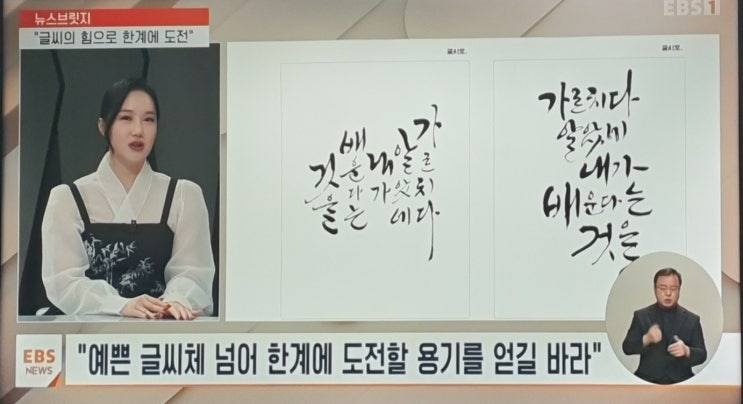 뉴스브릿지
"글씨의 힘으로 한계에 도전"
EBS1
가르치다
알았네
내가
배운다는
것을
가르치다
알았네
내가
배운다는
것을
EBS
NEWS
"예쁜 글씨체 넘어 한계에 도전할 용기를 얻길 바라"